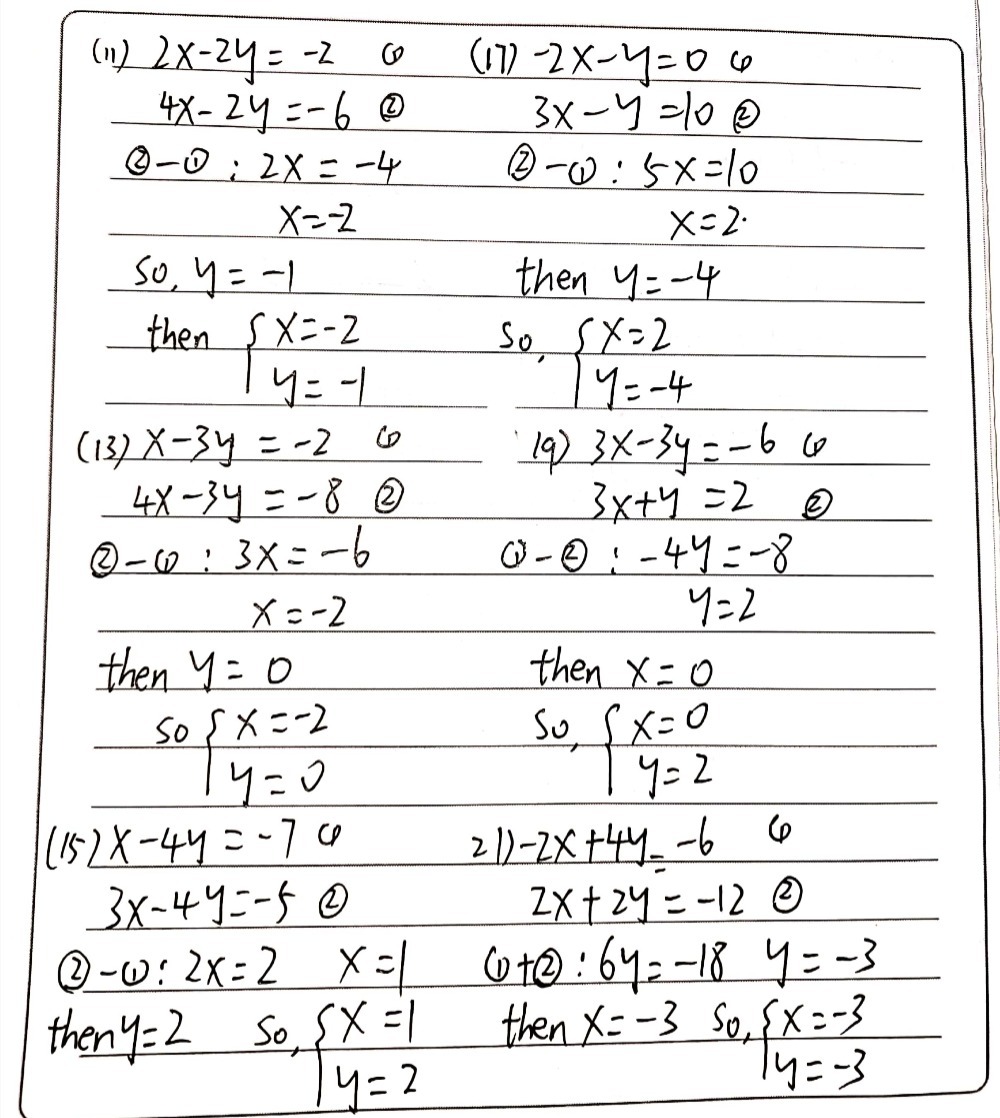 (11) 2x-2y=-2 ①
4x-2y=-6 ②
②-①: 2x=-4
x=-2
so, y=-1
then {x=-2
y=-1
(13) x-3y=-2 ①
4x-3y=-8 ②
②-①: 3x=-6
x=-2
then y=0
so {x=-2
y=0
(15) x-4y=-7 ①
3x-4y=-5 ②
②-①: 2x=2 x=1
then y=2 so, {x=1
y=2
(17) -2x-y=0 ①
3x-y=10 ②
②-①: 5x=10
x=2.
then y=-4
so, {x=2
y=-4
19) 3x-3y=-6 ①
3x+y=2 ②
①-②: -4y=-8
y=2
then x=0
so, {x=0
y=2
21) -2x+4y=-6 ①
2x+2y=-12 ②
①+②: 6y=-18 y=-3
then x=-3 so, {x=-3
y=-3